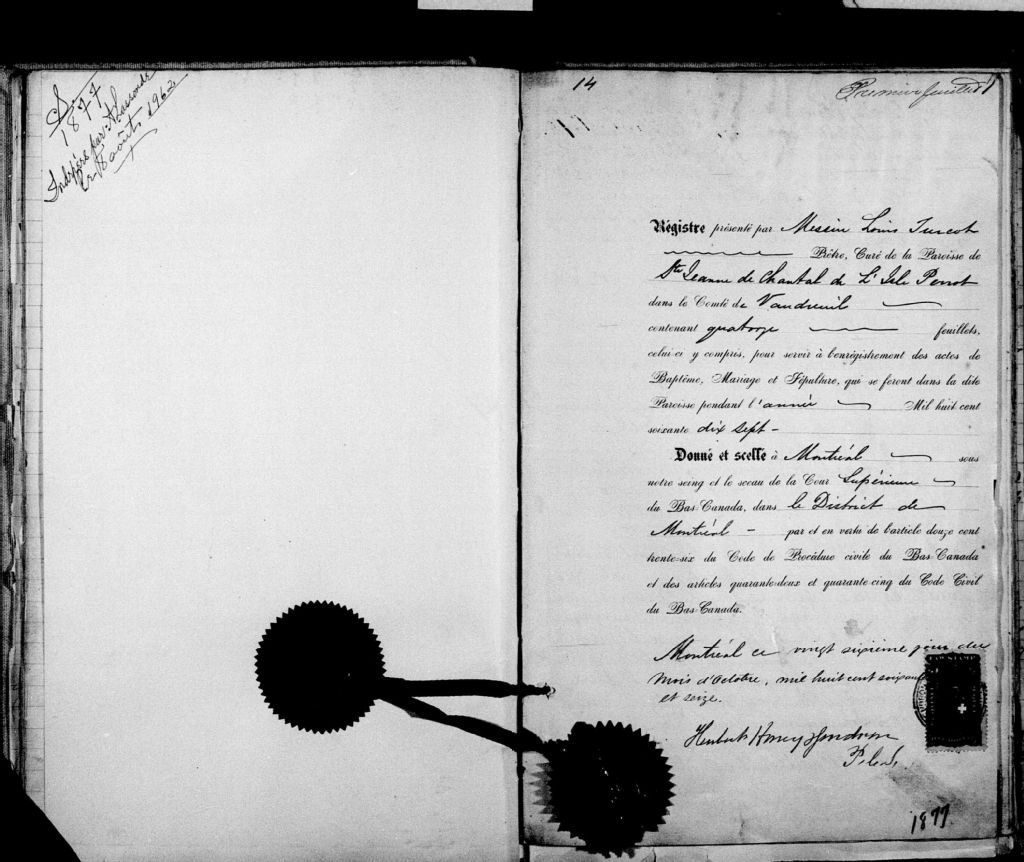 S
1877
le 8 août 1962
14
Premier feuillet
Régistre présenté par Messire Louis Turcot
Prêtre, Curé de la Paroisse de
Ste Jeanne de Chantal de L'Isle Perrot
dans le Comté de Vaudreuil
contenant quatorze feuillets,
celui-ci y compris, pour servir à l'enrégistrement des actes de
Baptême, Mariage et Sépulture, qui se feront dans la dite
Paroisse pendant l'année Mil huit cent
soixante dix sept -
Donné et scellé à Montréal sous
notre seing et le sceau de la Cour Supérieure
du Bas-Canada, dans le District de
Montréal - par et en vertu de l'article douze cent
trente-six du Code de Procédure civile du Bas-Canada
et des articles quarante-deux et quarante-cinq du Code Civil
du Bas-Canada.
Montréal ce vingt sixième jour du
mois d'Octobre, mil huit cent soixante
et seize.
1877